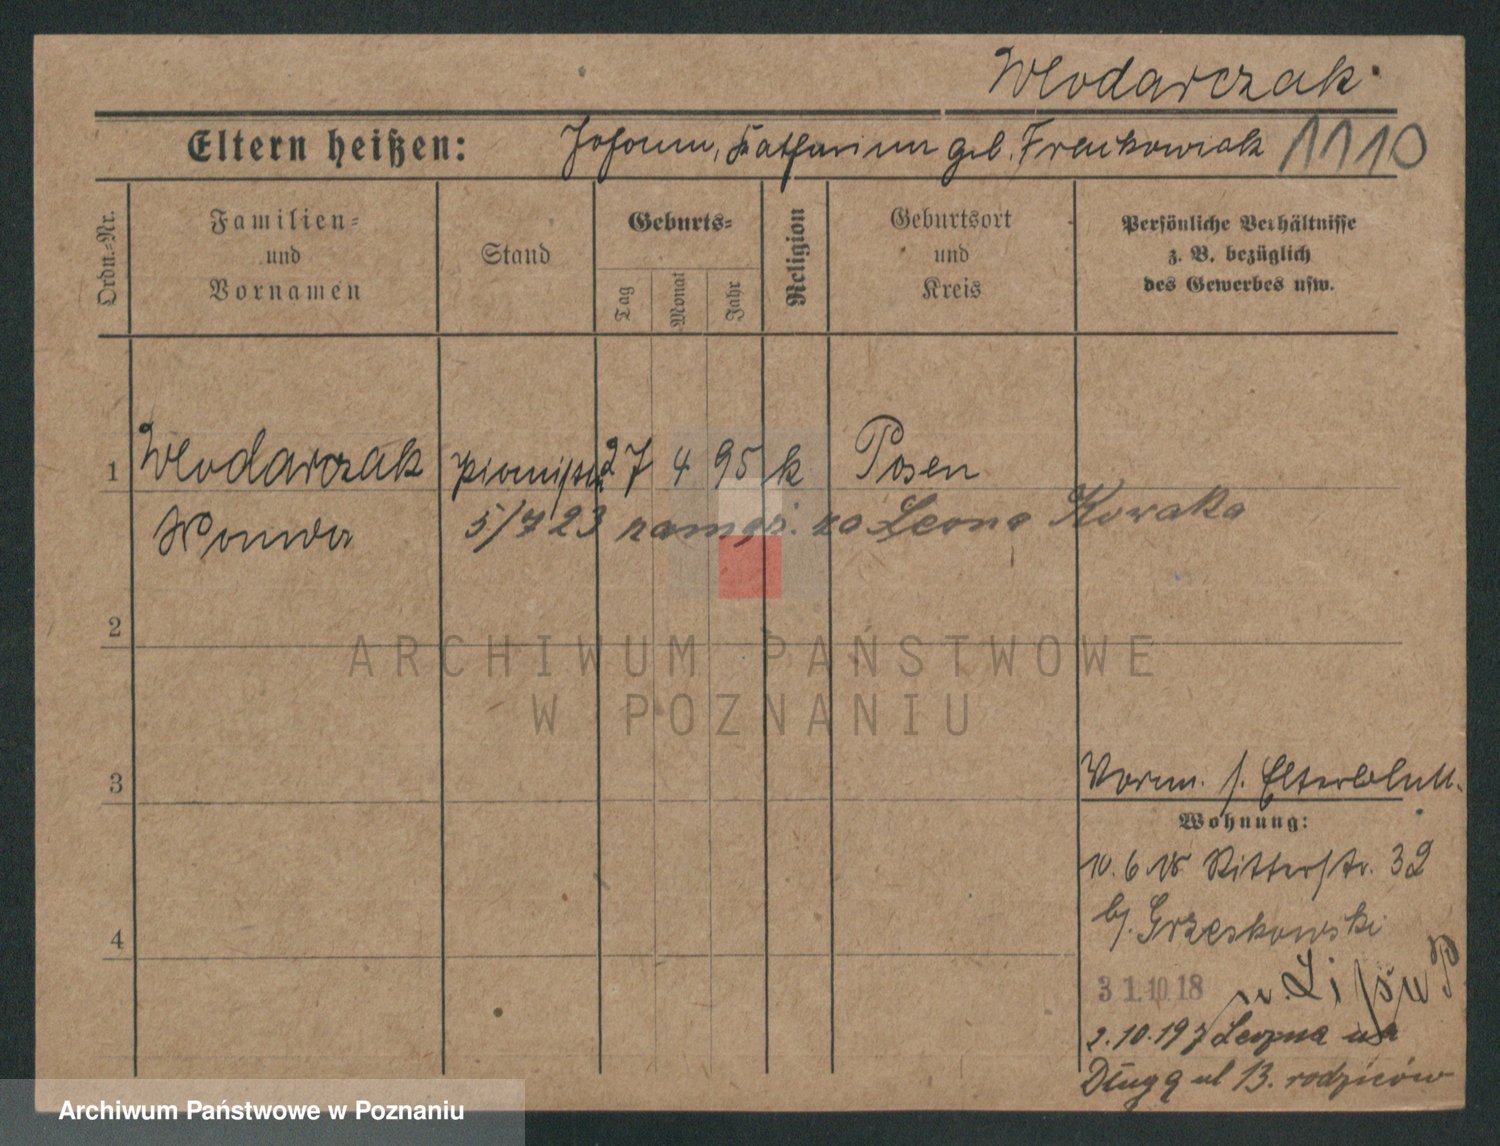 Wlodarczak
Eltern heißen: Johann, Katharina geb. Frackowiak 1110
Ordn.-Nr.
Familien- und Vornamen
Stand
Geburts-
Tag
Monat
Jahr
Religion
Geburtsort und Kreis
Persönliche Verhältnisse z. B. bezüglich des Gewerbes usw.
1 Wlodarczak 27 4 95 k Posen
5/7 23 zamęż. za Leona Kowaka
2
3
4
Vorm. s. Elternblatt.
Wohnung:
10.6.18 Ritterstr. 32
bj. Grzeskowski
31.10.18 n.
2.10.19
Długa ul 13. rodziców
ARCHIWUM PAŃSTWOWE
W POZNANIU
Archiwum Państwowe w Poznaniu